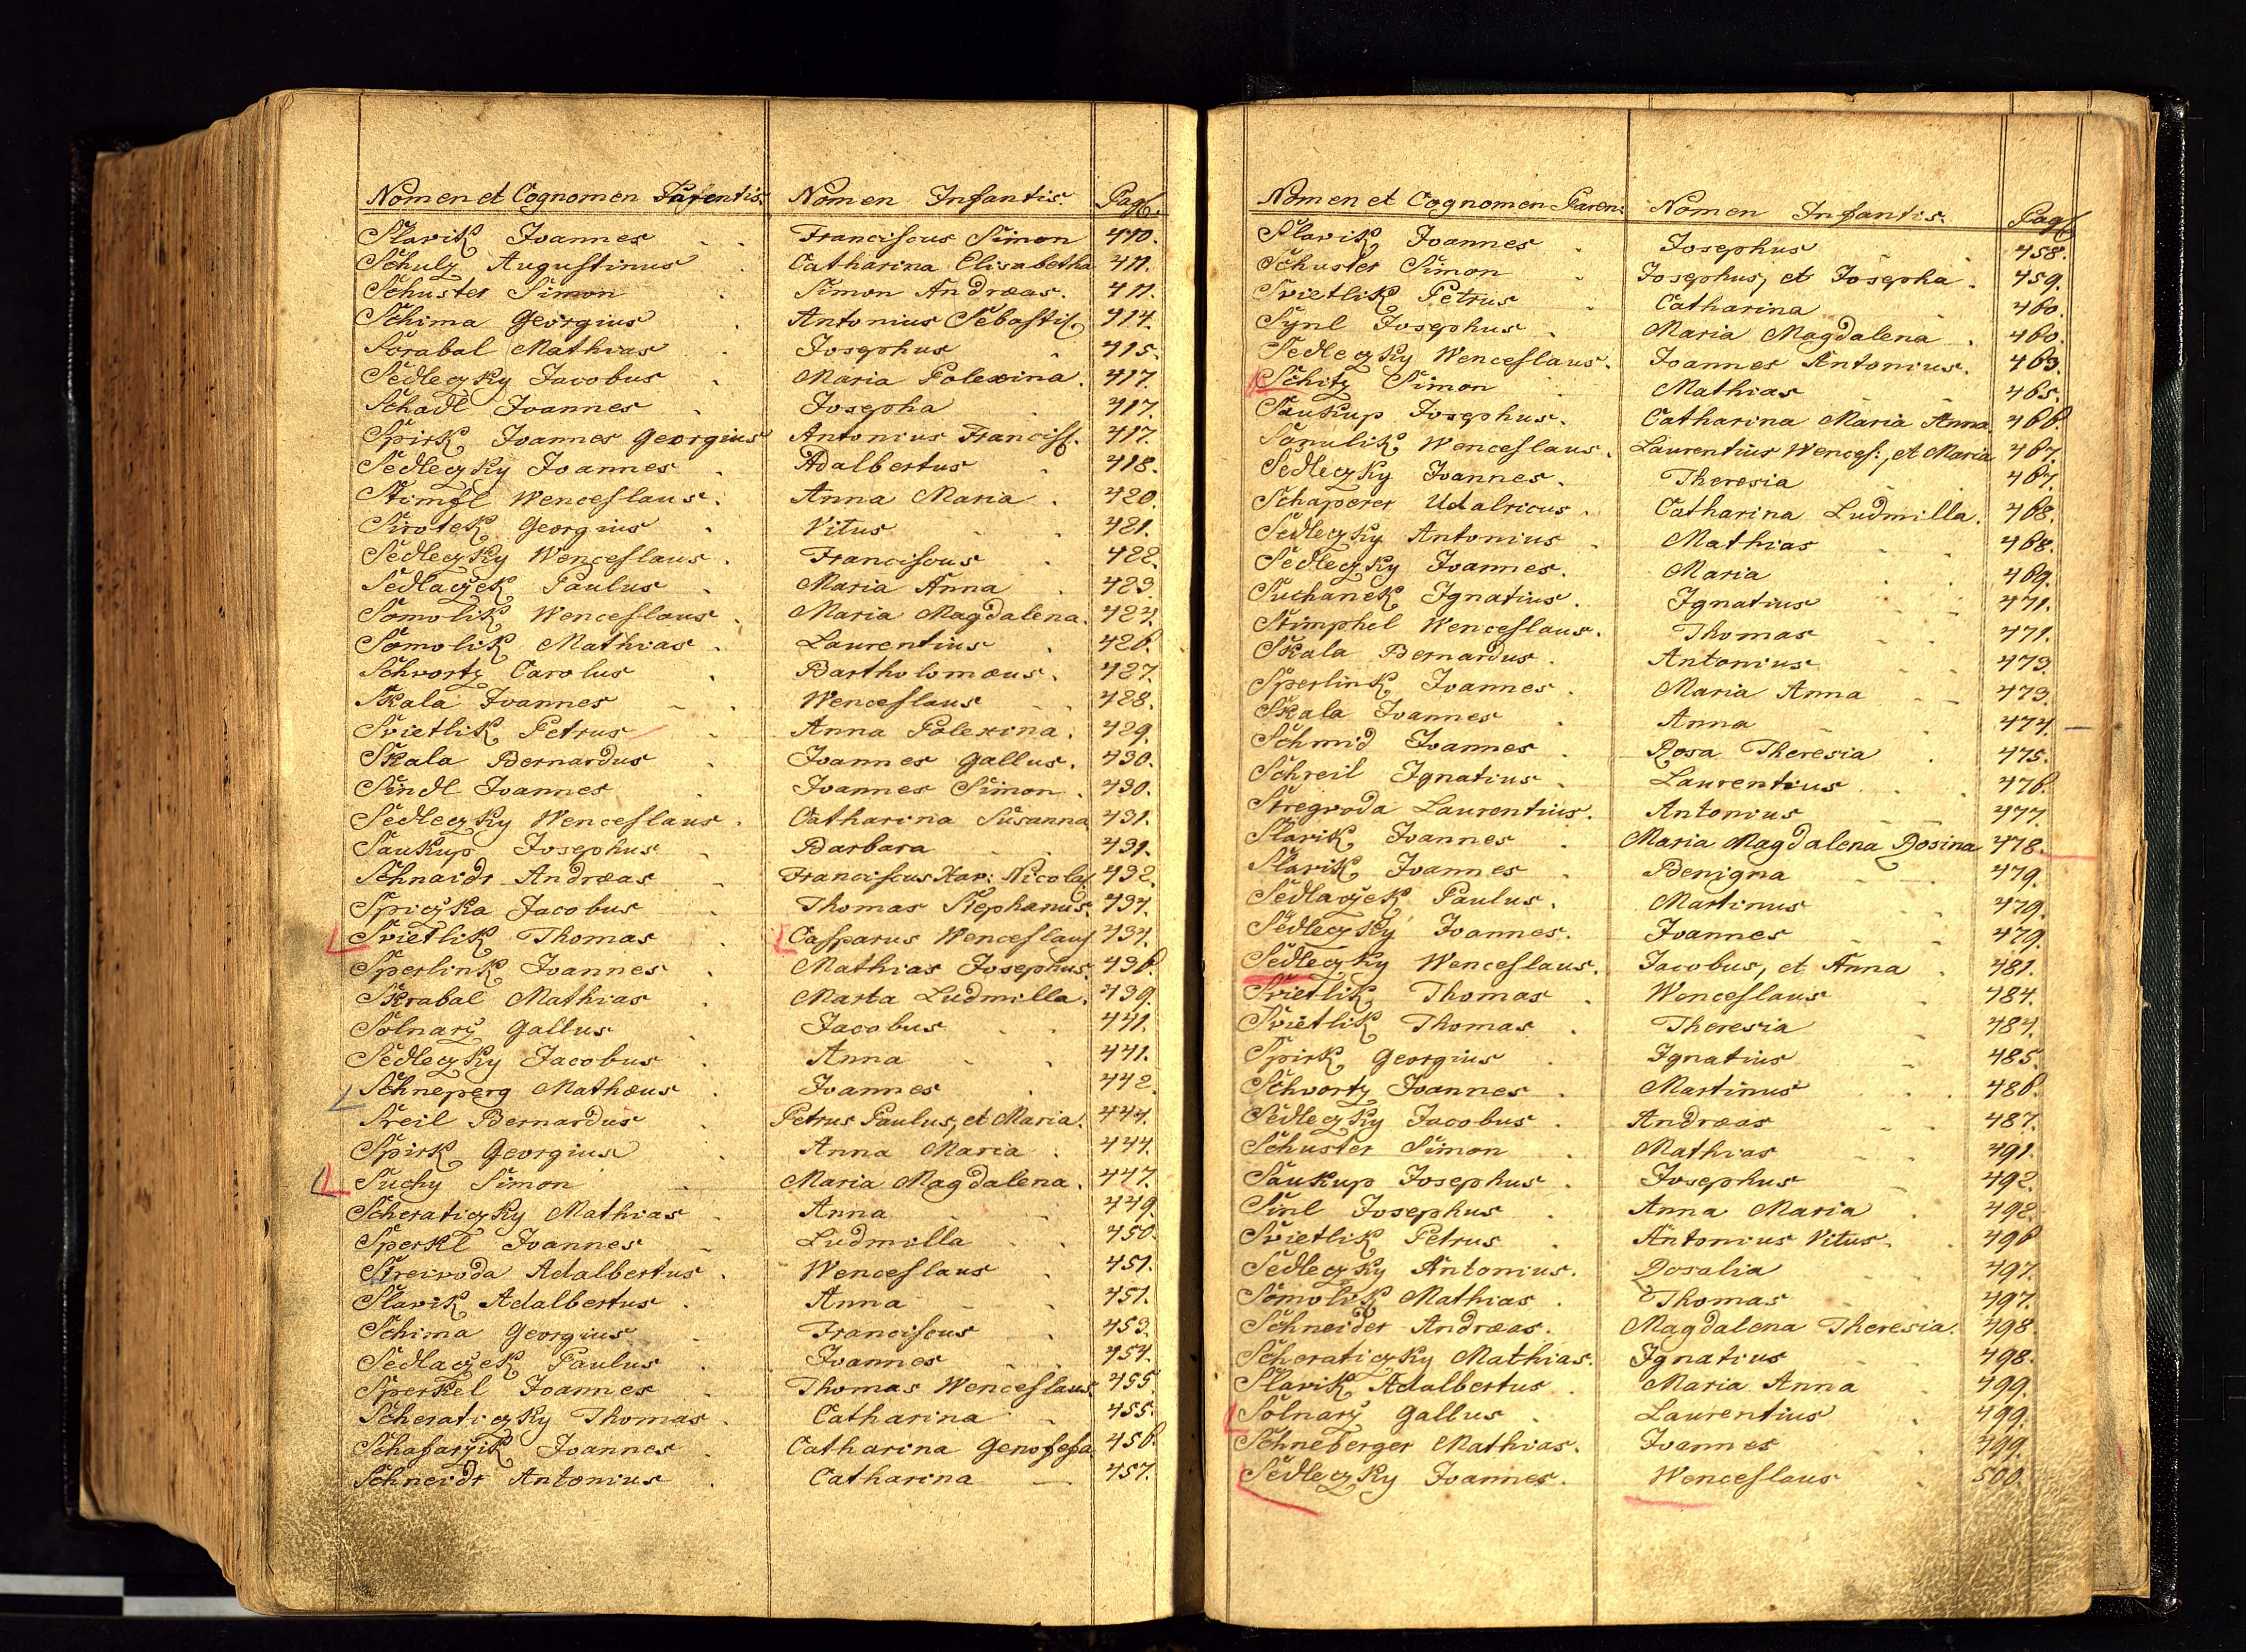 Nomen et Cognomen Parentis. Nomen Infantis. Pag.
Slavik Joannes Franciscus Simon 410.
Schulz Augustinus Catharina Elisabetha 411.
Schuster Simon Simon Andræas. 411.
Schima Georgius Antonius Sebasti 414.
Skrabal Mathias Josephus 415.
Sedleczky Jacobus Maria Polexina. 417.
Schadl Joannes Josepha 417.
Spirk Joannes Georgius Antonius Francis. 417.
Sedleczky Joannes Adalbertus 418.
Stimfl Wenceslaus. Anna Maria 420.
Sirotek Georgius Vitus 421.
Sedleczky Wenceslaus. Franciscus 422.
Sedlaczek Paulus Maria Anna 423.
Somolik Wenceslaus. Maria Magdalena. 424.
Somolik Mathias Laurentius 426.
Schvortz Carolus Bartholomæus. 427.
Skala Joannes Wenceslaus 428.
Svietlik Petrus Anna Polexina. 429.
Skala Bernardus Joannes Gallus. 430.
Sindl Joannes Joannes Simon. 430.
Sedleczky Wenceslaus. Catharina Susanna 431.
Saukup Josephus Barbara 431.
Schnaidr Andræas Franciscus Xav: Nicola 432.
Spiczka Jacobus Thomas Stephanus. 434.
Svietlik Thomas Casparus Wenceslaus 434.
Sperlink Joannes Mathias Josephus. 436.
Skrabal Mathias Marta Ludmilla. 439.
Solnarz Gallus Jacobus 441.
Sedleczky Jacobus Anna 441.
Schneperg Mathæus Joannes 442
Streil Bernardus Petrus Paulus, et Maria. 444.
Spirk Georgius Anna Maria 444.
Suchy Simon Maria Magdalena. 447.
Scheraticzky Mathias Anna 449.
Sperkl Joannes Ludmilla 450.
Streivoda Adalbertus. Wenceslaus 451.
Slavik Adalbertus Anna 451.
Schima Georgius Franciscus 453.
Sedlaczek Paulus Joannes 454.
Sperkel Joannes Thomas Wenceslaus 455.
Scheraticzky Thomas Catharina 455.
Schafarzik Joannes Catharina Genofefa 456.
Schneidr Antonius Catharina 457.
Nomen et Cognomen Paren: Nomen Infantis. Pag
Slavik Joannes Josephus 458.
Schuster Simon Josephus, et Josepha 459.
Svietlik Petrus Catharina 460.
Synl Josephus Maria Magdalena 460.
Sedleczky Wenceslaus. Joannes Antonius. 463.
Schitz Simon Mathias 465.
Saukup Josephus. Catharina Maria Anna 466.
Somulik Wenceslaus. Laurentius Wences:, et Maria 467.
Sedleczky Joannes. Theresia 467.
Schaperer Udalricus. Catharina Ludmilla. 468.
Sedleczky Antonius Mathias 468.
Sedleczky Joannes. Maria 469.
Suchanek Ignatius. Ignatius 471.
Stimphel Wenceslaus. Thomas 471.
Skala Bernardus. Antonius 473
Sperlink Joannes. Maria Anna 473.
Skala Joannes Anna 474.
Schmid Joannes Rosa Theresia 475.
Schreil Ignatius Laurentius 476.
Stregvoda Laurentius. Antonius 477.
Slavik Joannes Maria Magdalena Rosina 478.
Slavik Joannes Benigna 479.
Sedlaczek Paulus. Martinus 479.
Sedleczky Joannes. Joannes 479.
Sedleczky Wenceslaus. Jacobus, et Anna 481.
Svietlik Thomas Wenceslaus 484.
Svietlik Thomas Theresia 484.
Spirk Georgius Ignatius 485.
Schvortz Joannes Martinus 486.
Sedleczky Jacobus Andræas 487.
Schuster Simon Mathias 491.
Saukup Josephus Josephus 492.
Sinl Josephus Anna Maria 492.
Svietlik Petrus Antonius Vitus. 496
Sedleczky Antonius. Rosalia 497.
Somolik Mathias Thomas 497.
Schneider Andræas. Magdalena Theresia. 498.
Scheraticzky Mathias. Ignatius 498.
Slavik Adalbertus Maria Anna 499.
Solnarz Gallus Laurentius 499.
Schneberger Mathias. Joannes 499.
Sedleczky Joannes. Wenceslaus 500.